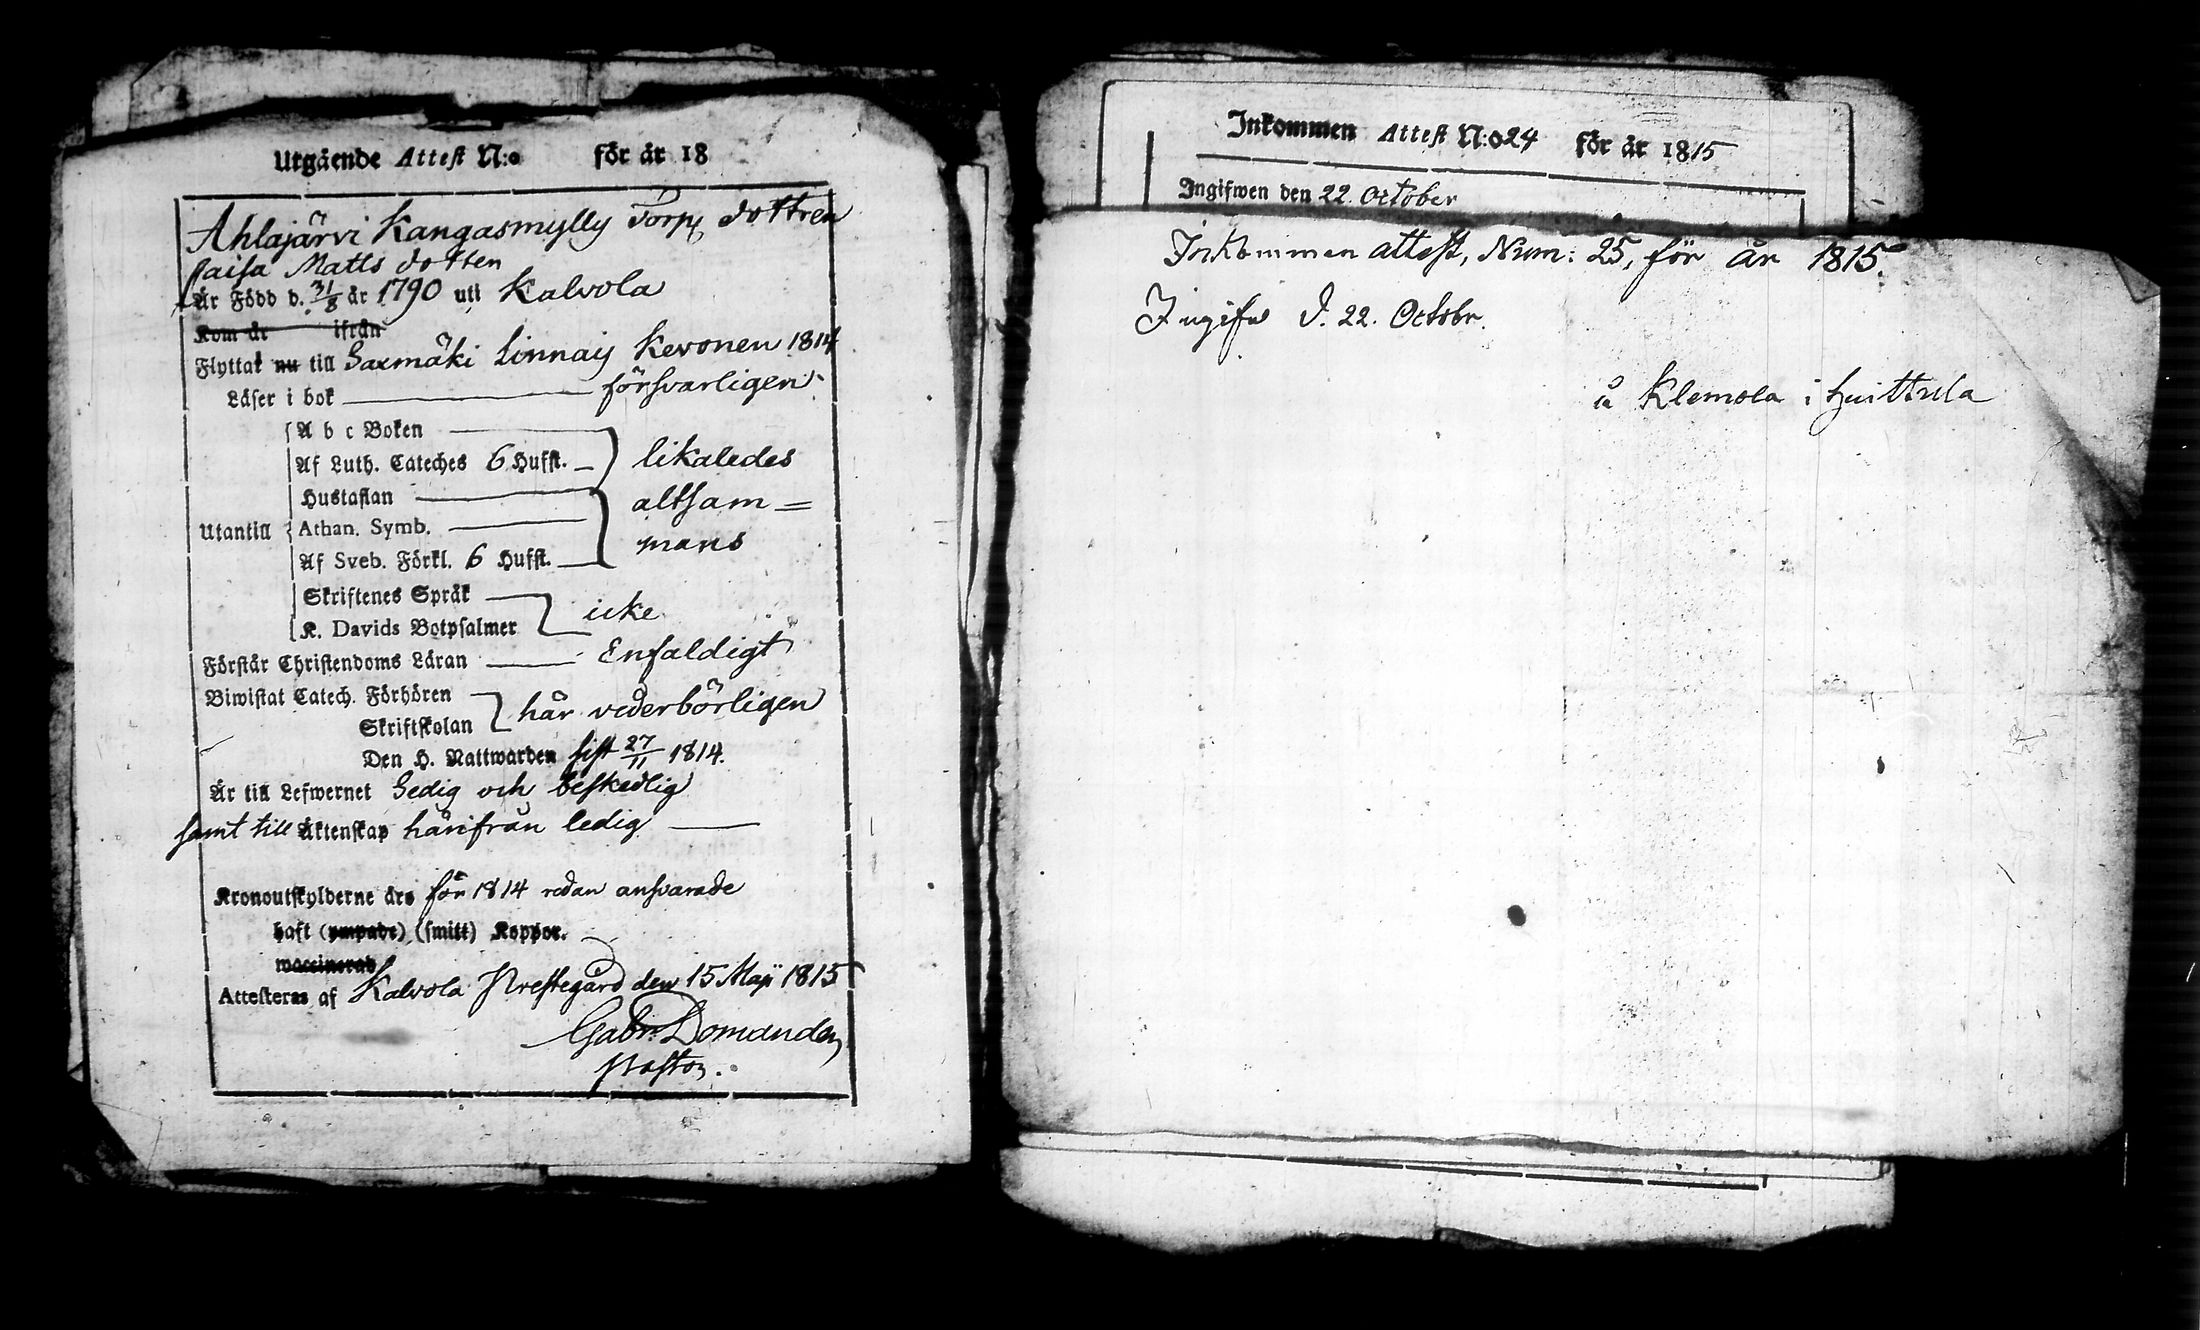 Utgående Attest N:o för år 18
Ahlajärvi Kangasmylly Torp dottren
Caisa Matts dotten
Är Född d. 31/8 år 1790 uti Kalvola
Kom år ifrån
Flyttat nu till Saxmäki Linnais Kevonen 1814
Läser i bok försvarligen
A b c Boken
Af Luth. Cateches 6 Hufst. likaledes
Hustaflan altsam=
Utantill Athan. Symb.
Af Sveb. Förkl. 6 Hufst. mans
Skriftenes Språk
K. Davids Botpsalmer icke
Förstår Christendoms Läran Enfaldigt
Biwistat Catech. Förhören
Skriftskolan här vederbörligen
Den H. Nattwarden sist 27/11 1814.
Är till Lefwernet Sedig och beskedlig
samt till Äktenskap härifrån ledig
Kronoutskylderne äro för 1814 redan ansvarade
haft (ympade) (smitt) Koppor.
waccinerad
Attesteras af Kalvola Prestegård den 15 Maji 1815
Gabr. Domander
Pastor.
Inkommen Attest N:o 24 för år 1815
Ingifwen den 22. October
Inkommen attest, Num: 25, för år 1815.
Ingifw d. 22. Octobr.
å Klemola i Huittula